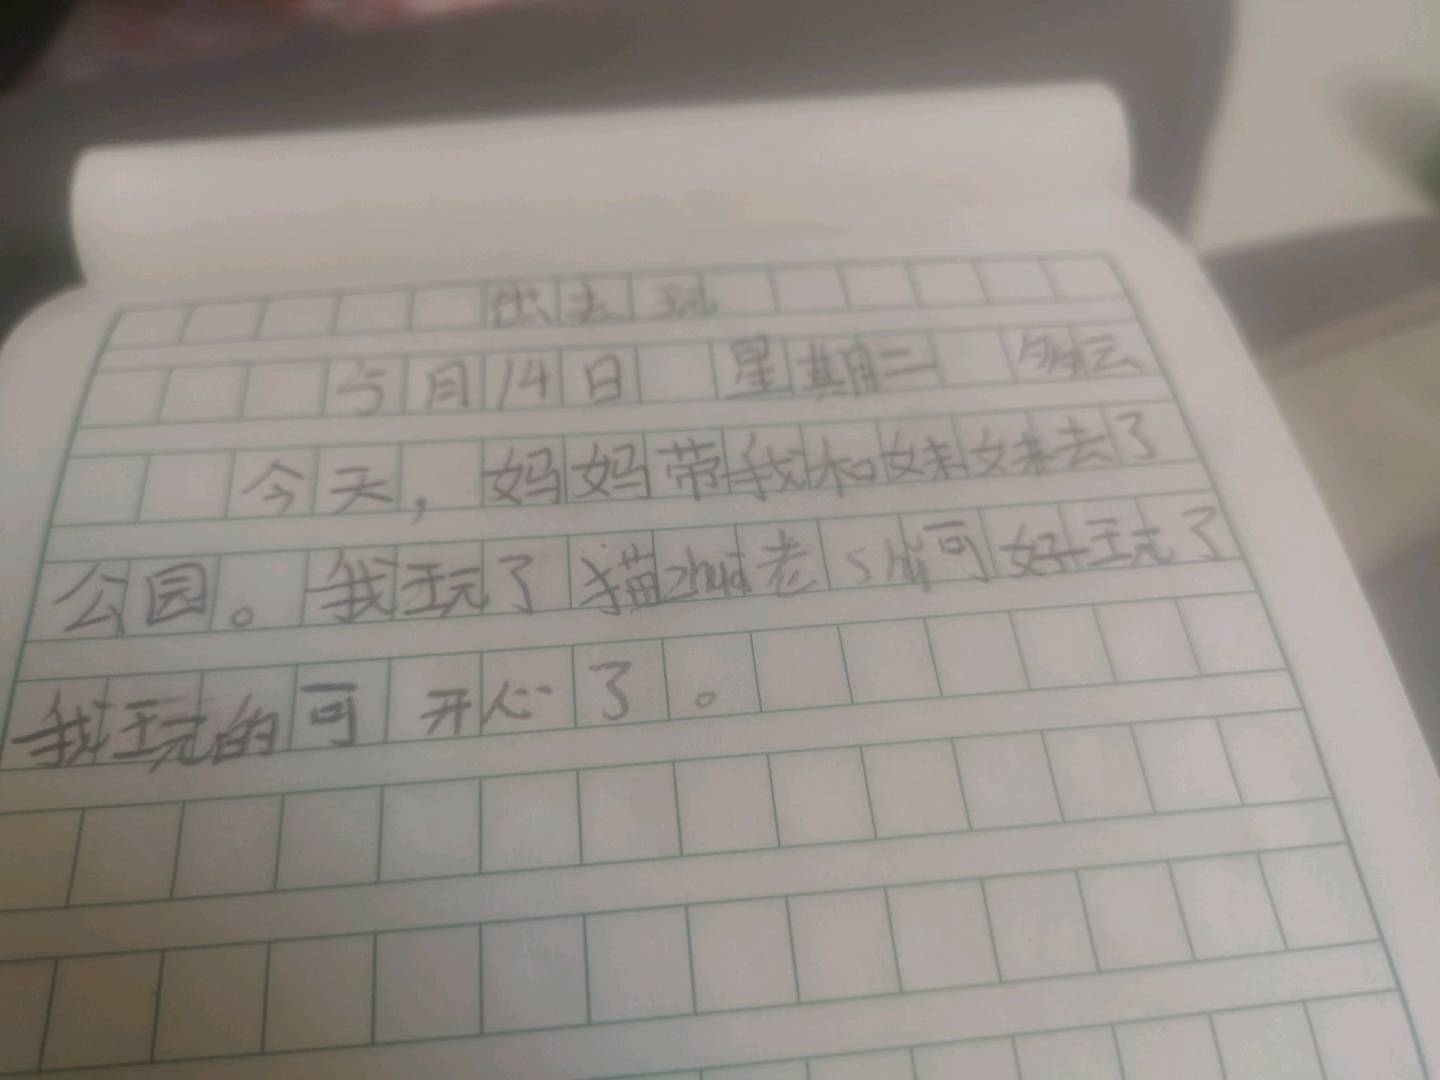 出去玩
5月14日 星期二 多云
今天，妈妈带我和妹妹去了
公园。我玩了猫zhuā老shǔ可好玩了
我玩的可开心了。